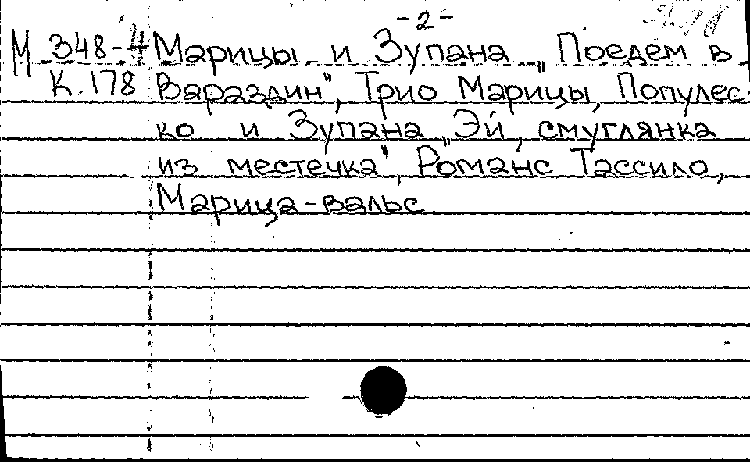 -2-
М 348-4 Марицы и Зупана „Поедем в
К.178 Вараздин", Трио Марицы, Популес
ко и Зупана „Эй, смуглянка
из местечка", Романс Тассило,
Марица-вальс